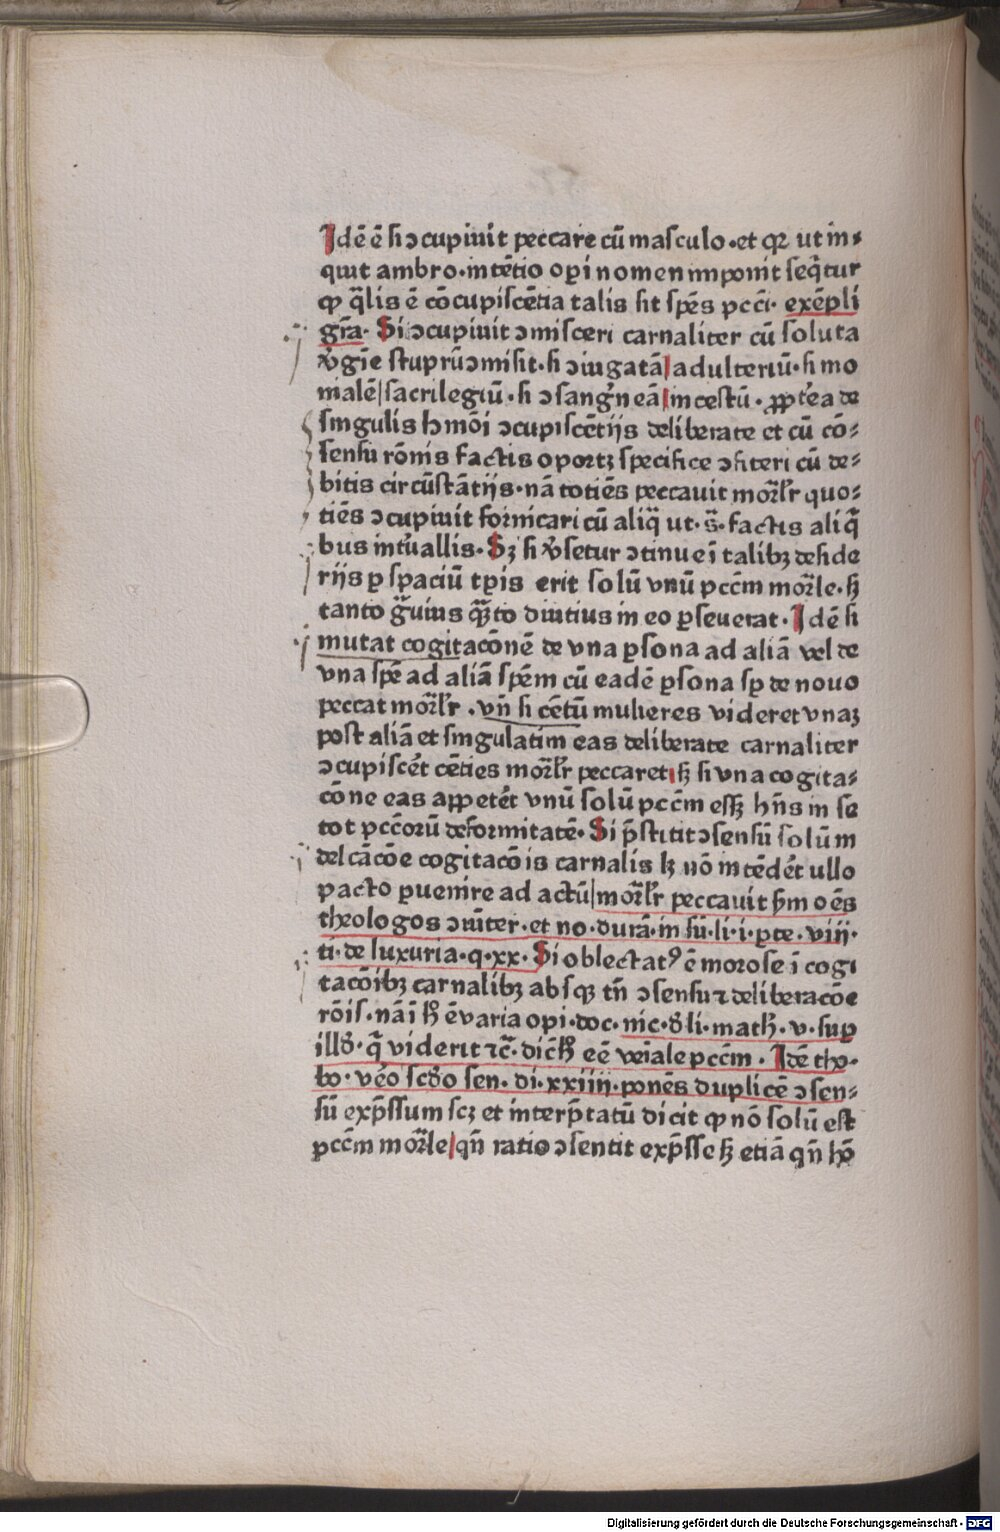 Idē ē si ↄcupiuit peccare cū masculo · et qꝛ ut in⸗
quit ambro · intētio oꝑi nomen imponit seq̄tur
ꝙ q̄lis ē cōcupiscētia talis sit spēs pcci · exēpli
gr̄a · Si ↄcupiuit ↄmisceri carnaliter cū soluta
v̓gīe stuprū ↄmisit · si ↄiugatā | adulteriū · si mo
nialē | sacrilegiū · si ↄsang̓neā | incestū · ꝓpt̓ea de
singulis hꝰmōi ↄcupiscētijs deliberate et cū cō⸗
sensu rōnis factis oportꝫ specifice ↄfiteri cū de⸗
bitis circūstātijs · nā totiēs peccauit mor̄lr quo⸗
tiēs ↄcupiuit fornicari cū aliq̄ ut · s̄ · factis aliq̄
bus int̓uallis · Sꝫ si v̓setur ↄtinue ī talibꝫ deside
rijs ꝑ spaciū tꝑis erit solū vnū pccm mor̄le · sꝫ
tanto g̓uius q̄̄to diutius in eo ꝑseuerat · Idē si
mutat cogitacōnē de vna ꝑsona ad aliā vel de
vna spē ad aliā spēm cū eadē ꝑsona sꝑ de nouo
peccat mor̄lr · vn̄ si cētū mulieres videret vnaꝫ
post aliā et singulatim eas deliberate carnaliter
ↄcupiscēt cēties mor̄lr peccaret | sꝫ si vna cogita⸗
cōne eas appetēt vnū solū pccm essꝫ hn̄s in se
tot pccōrū deformitatē · Si p̄stitit ↄsensū solū in
delc̄acōe cogitacōis carnalis lꝫ nō intēdēt ullo
pacto ꝑuenire ad actū | mor̄lr peccauit ẜm oēs
theologos ↄuīter · et no · durā · in sū · li · i · ꝑte · viij ·
ti · de luxuria · q · xx · Si oblectatꝰ ē morose ī cogi
tacōibꝫ carnalibꝫ absqꝫ tn̄ ↄsensu ⁊ deliberacōe
rōis · nā ī hͦ ē varia opi · doc · nic · d̓ li · math̄ · v · suꝑ
illd̓ · q̄ viderit ⁊c̄ · dic̄ hͦ eē veīale pccm · Idē tho ·
bo · v̓o scd̓o sen · di · xxiiij · ponēs duplicē ↄsen⸗
sū exp̄ssum scꝫ et interp̄tatū dicit ꝙ nō solū est
pccm mor̄le | qn̄ ratio ↄsentit exp̄sse sꝫ etiā qn̄ hō
Digitalisierung gefördert durch die Deutsche Forschungsgemeinschaft - DFG